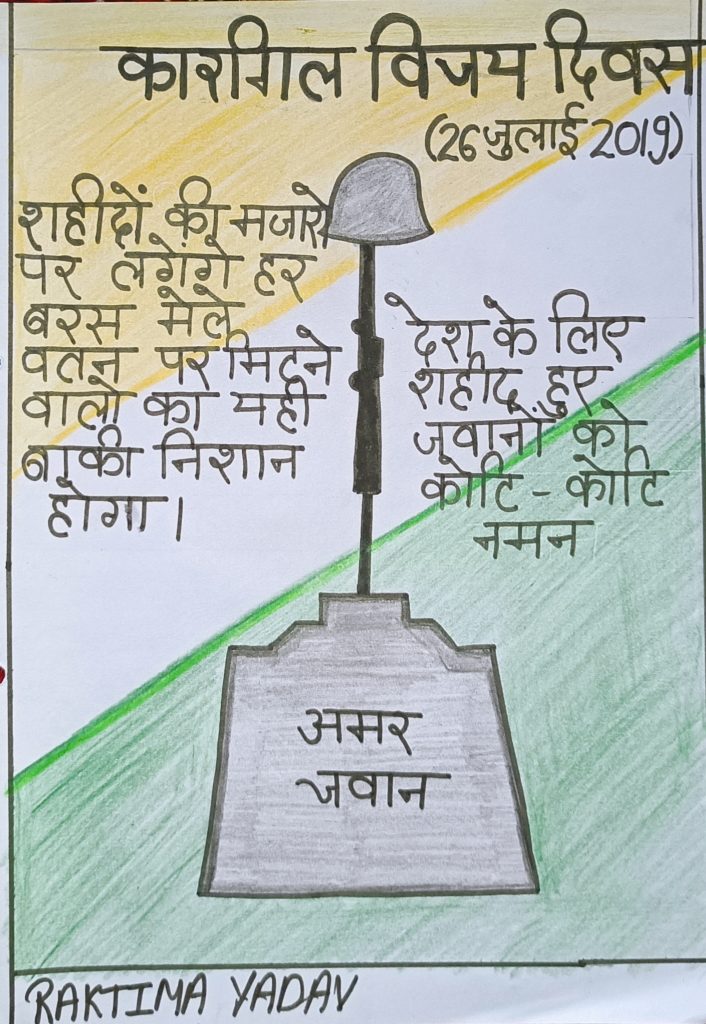 कारगिल विजय दिवस
(26 जुलाई 2019)
शहीदों की मजारो
पर लगेंगे हर
बरस मेले
वतन पर मिटने
वालो का यही
बाकी निशान
होगा।
देश के लिए
शहीद हुए
जवानों को
कोटि - कोटि
नमन
अमर
जवान
RAKTIMA YADAV